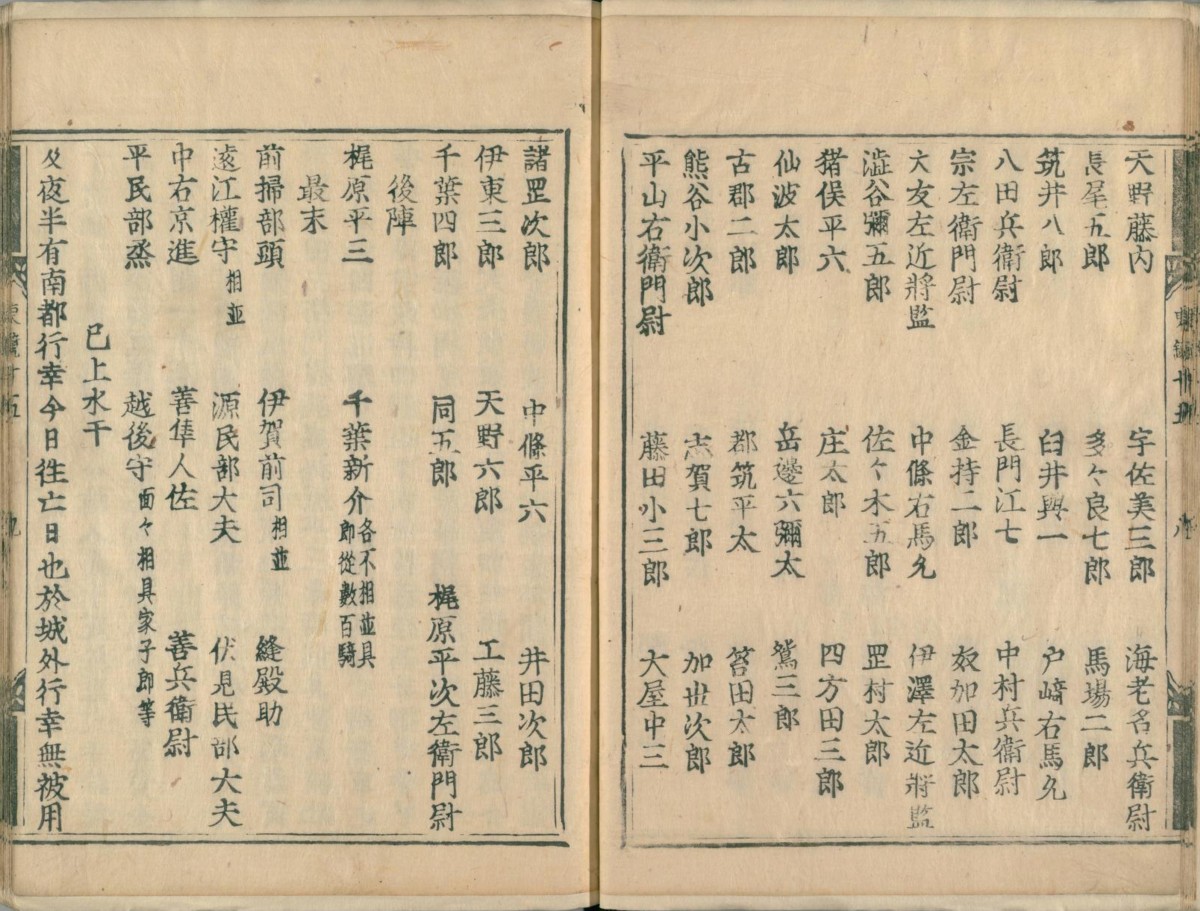 天野藤内 宇佐美三郎 海老名兵衛尉
長尾五郎 多々良七郎 馬場二郎
筑井八郎 臼井與一 戸﨑右馬允
八田兵衛尉 長門江七 中村兵衛尉
宗左衛門尉 金持二郎 奴加田太郎
大友左近將監 中條右馬允 伊澤左近將監
澁谷彌五郎 佐々木五郎 罡村太郎
猪俣平六 庄太郎 四方田三郎
仙波太郎 岳邊六彌太 鴛三郎
古郡二郎 郡筑平太 筥田太郎
熊谷小次郎 志賀七郎 加世次郎
平山右衛門尉 藤田小三郎 大屋中三
諸罡次郎 中條平六 井田次郎
伊東三郎 天野六郎 工藤三郎
千葉四郎 同五郎 梶原平次左衛門尉
後陣
梶原平三 千葉新介 各不相並具郎從數百騎
最末
前掃部頭 伊賀前司 相並 縫殿助
遠江權守 相並 源民部大夫 伏見民部大夫
中右京進 善隼人佐 善兵衛尉
平民部烝 越後守 面々相具家子郎等
已上水干
及夜半有南都行幸今日徃亡日也於城外行幸無被用